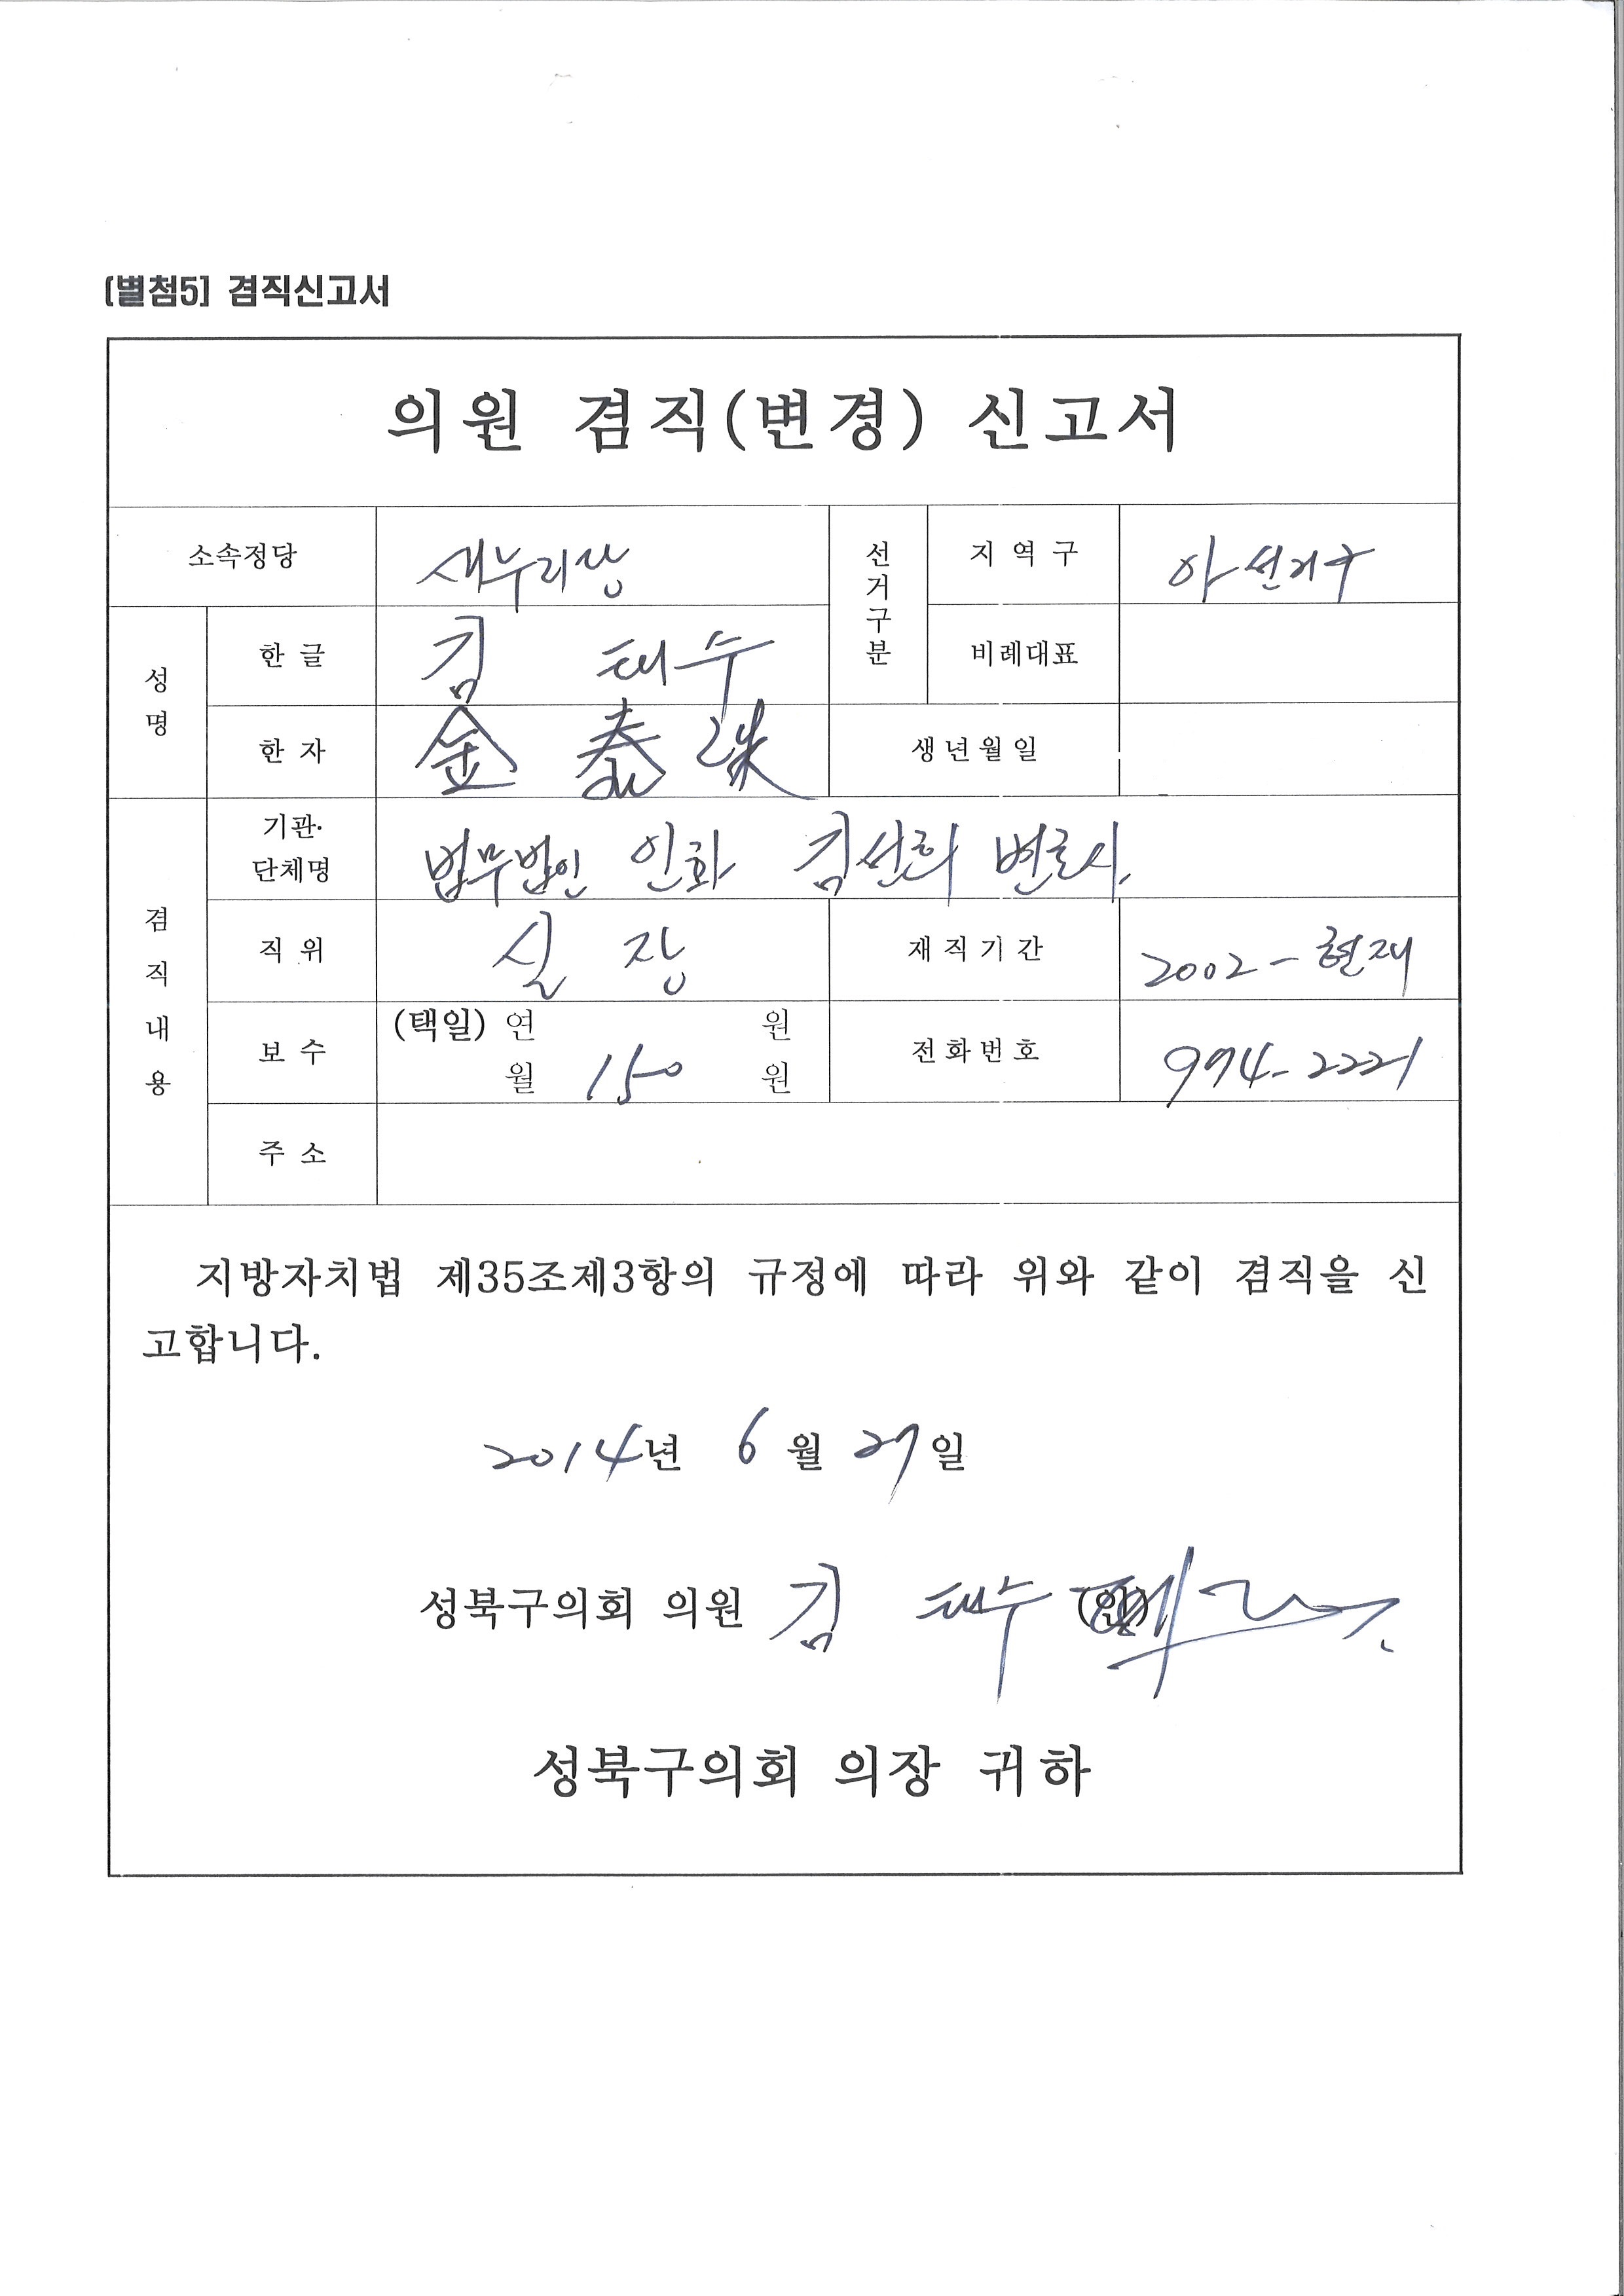 [별첨5] 겸직신고서
의원 겸직(변경) 신고서
소속정당 새누리당 선거구분 지역구 아선거구
성명 한글 김 태수 비례대표
한자 金 泰 洙 생년월일
겸직내용 기관·단체명 법무법인 인화 김선희 변호사.
직위 실장 재직기간 2002 - 현재
보수 (택일) 연 원
월 150 원 전화번호 994-2221
주소
지방자치법 제35조제3항의 규정에 따라 위와 같이 겸직을 신
고합니다.
2014년 6월 27일
성북구의회 의원 김 태수 (인)
성북구의회 의장 귀하